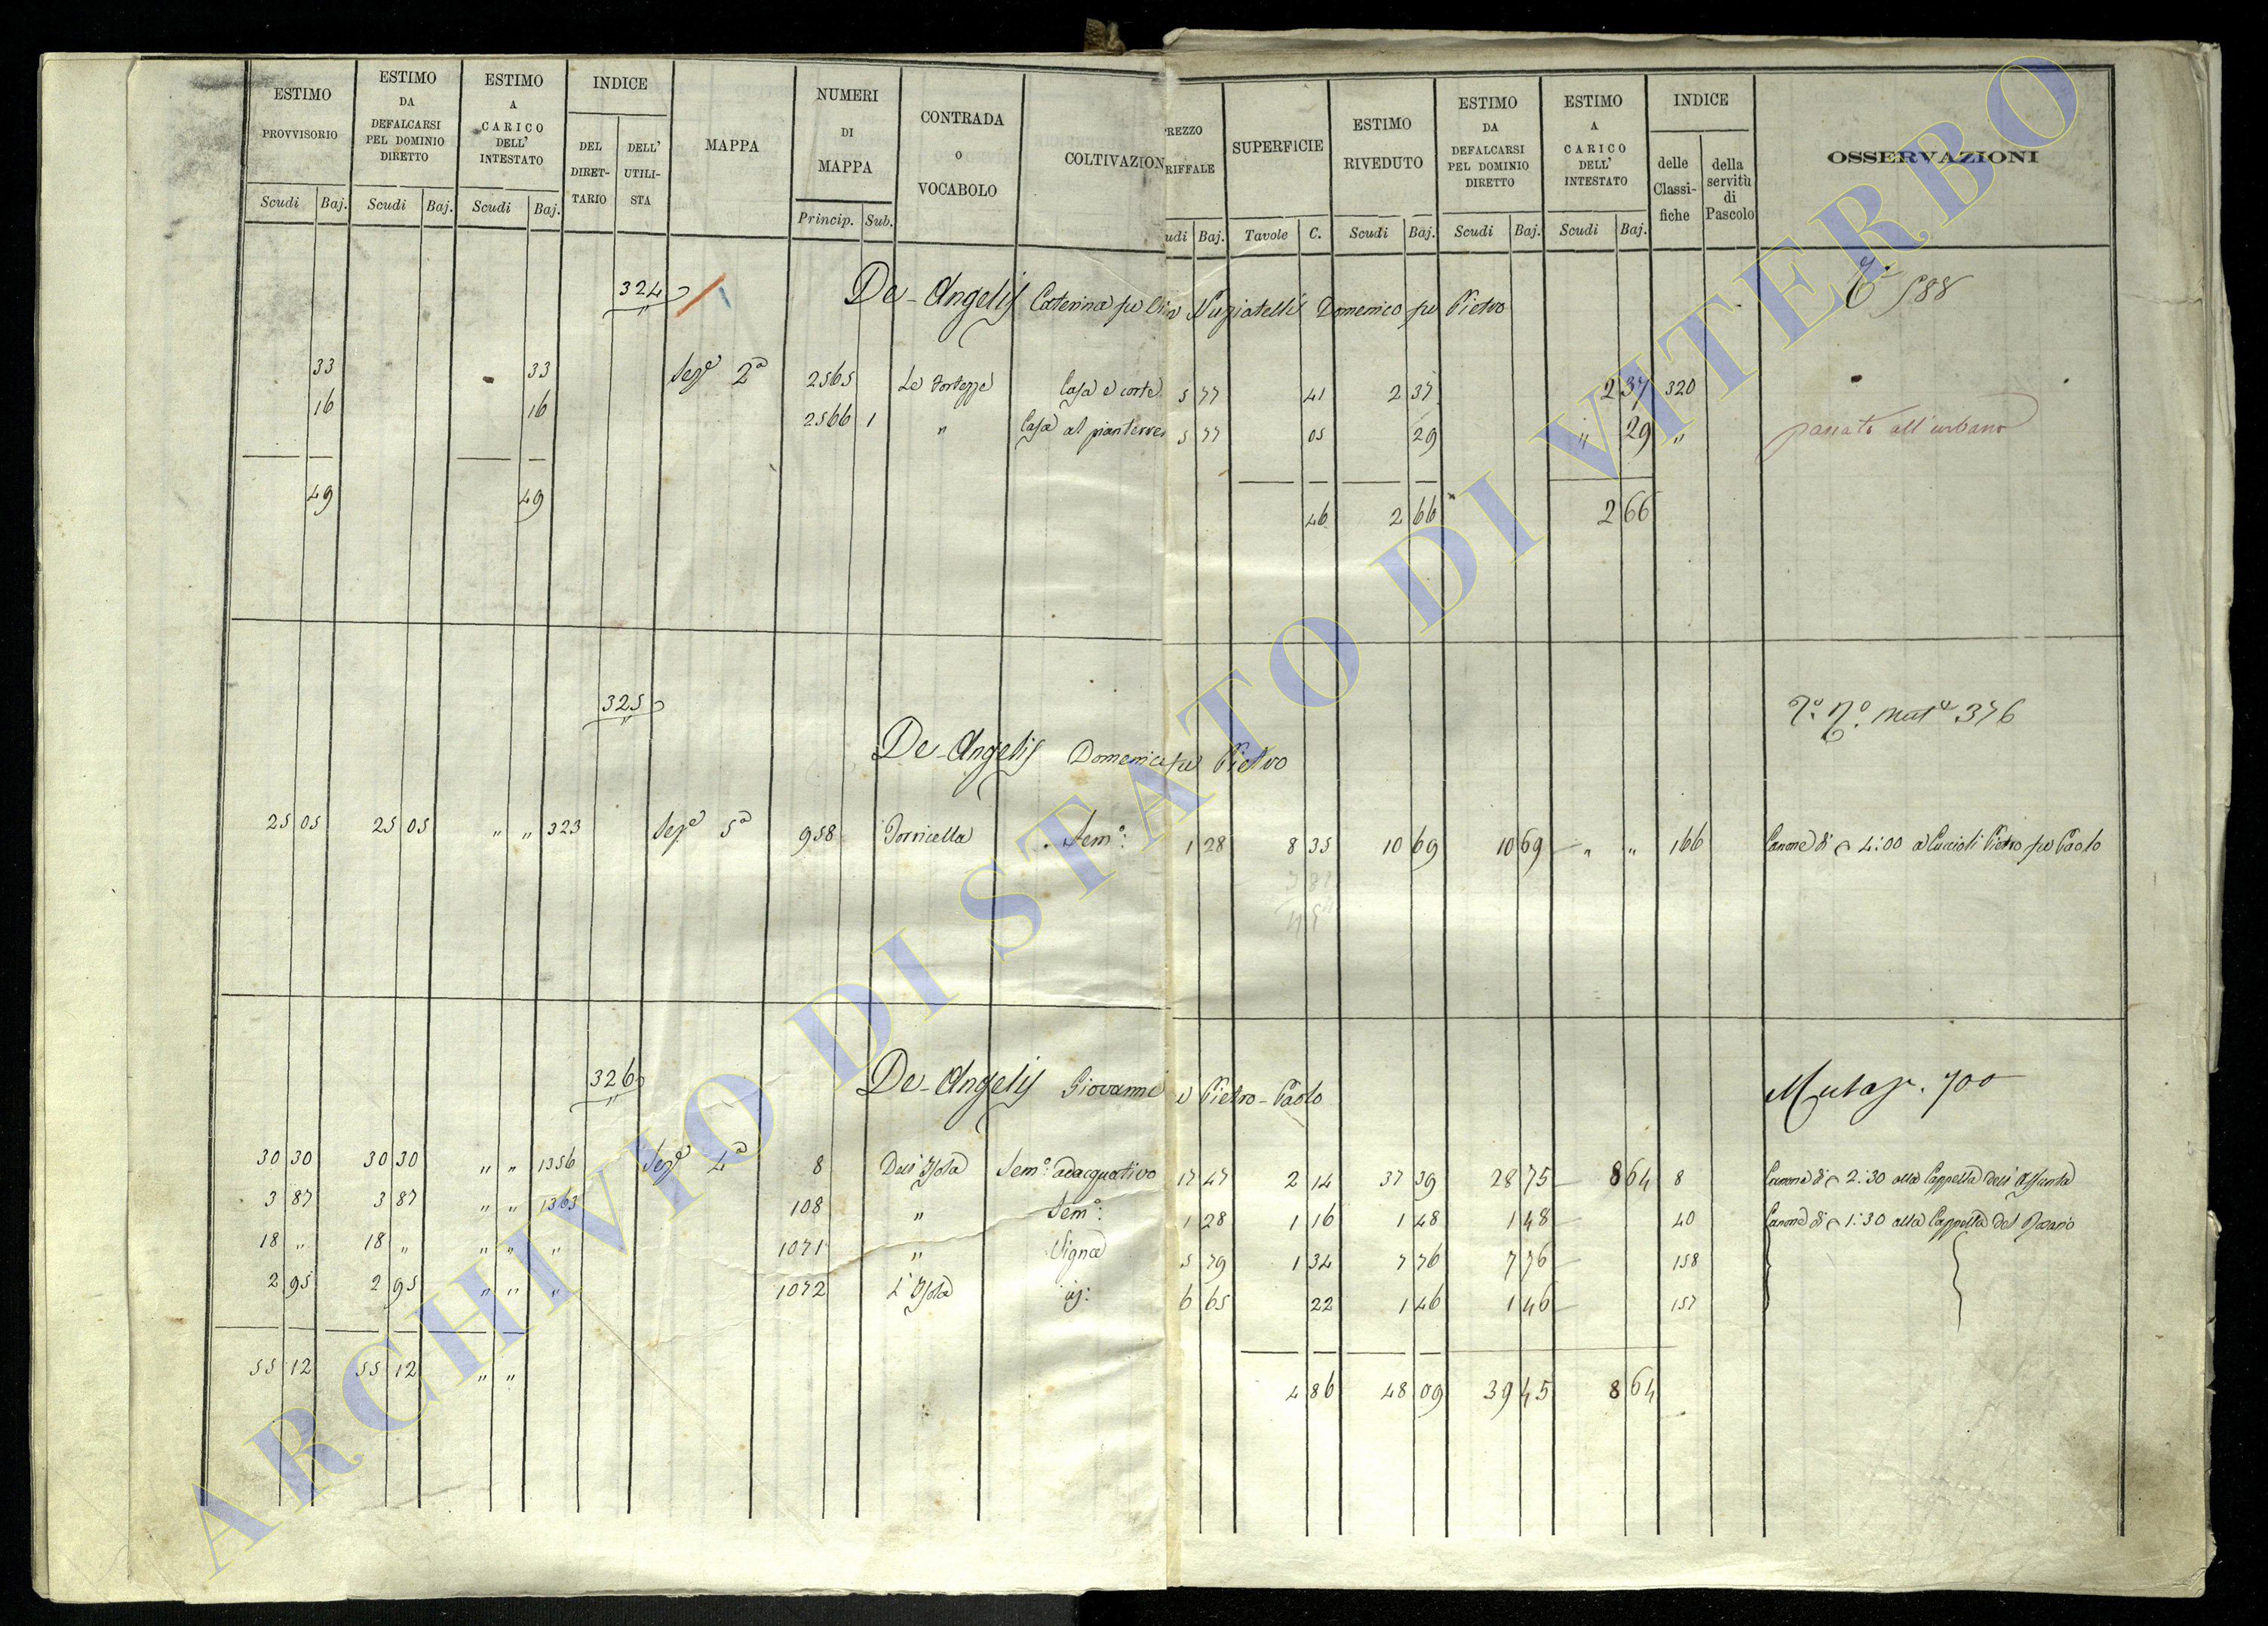 ESTIMO PROVVISORIO
ESTIMO DA DEFALCARSI PEL DOMINIO DIRETTO
ESTIMO A CARICO DELL' INTESTATO
INDICE
DEL DIRETTARIO
DELL' UTILISTA
MAPPA
NUMERI DI MAPPA
CONTRADA O VOCABOLO
COLTIVAZION
REZZO RIFFALE
SUPERFICIE
ESTIMO RIVEDUTO
ESTIMO DA DEFALCARSI PEL DOMINIO DIRETTO
ESTIMO A CARICO DELL' INTESTATO
INDICE
delle Classifiche
della servitù di Pascolo
OSSERVAZIONI
Scudi Baj. Scudi Baj. Scudi Baj. Princip. Sub. udi Baj. Tavole C. Scudi Baj. Scudi Baj. Scudi Baj.
324 De-Angelis Caterina fu Domenico fu Pietro 588
33 33 Sez.e 2a 2565 Le Fortezze Casa e corte 5 77 41 2 37 2 37 320
16 16 2566 1 " Casa al pianterre 5 77 05 29 " 29 " passato all'urbano
49 49 46 2 66 2 66
325 376
De-Angelis Domenico fu Pietro
25 05 25 05 " " 323 Sez.e 5a 958 Torricella Sem.o: 1 28 8 35 10 69 10 69 " " 166 Canone di 4:00 a Cuccioli Pietro fu Paolo
326 De-Angelis Giovanni e Pietro-Paolo 700
30 30 30 30 " " 1356 Sez.e 4a 8 Dell'Isola Sem.o: adacquativo 17 47 2 14 37 39 28 75 8 64 8 Canone di 2:30 alla Cappella dell'Assunta
3 87 3 87 " " 1363 108 " Sem.o: 1 28 1 16 1 48 1 48 40 Canone di 1:30 alla Cappella del Rosario
18 " 18 " " " " 1071 " Vigna 5 79 1 34 7 76 7 76 158
2 95 2 95 " " " 1072 L'Isola 6 65 22 1 46 1 46 157
55 12 55 12 " " 4 86 48 09 39 45 8 64
ARCHIVIO DI STATO DI VITERBO